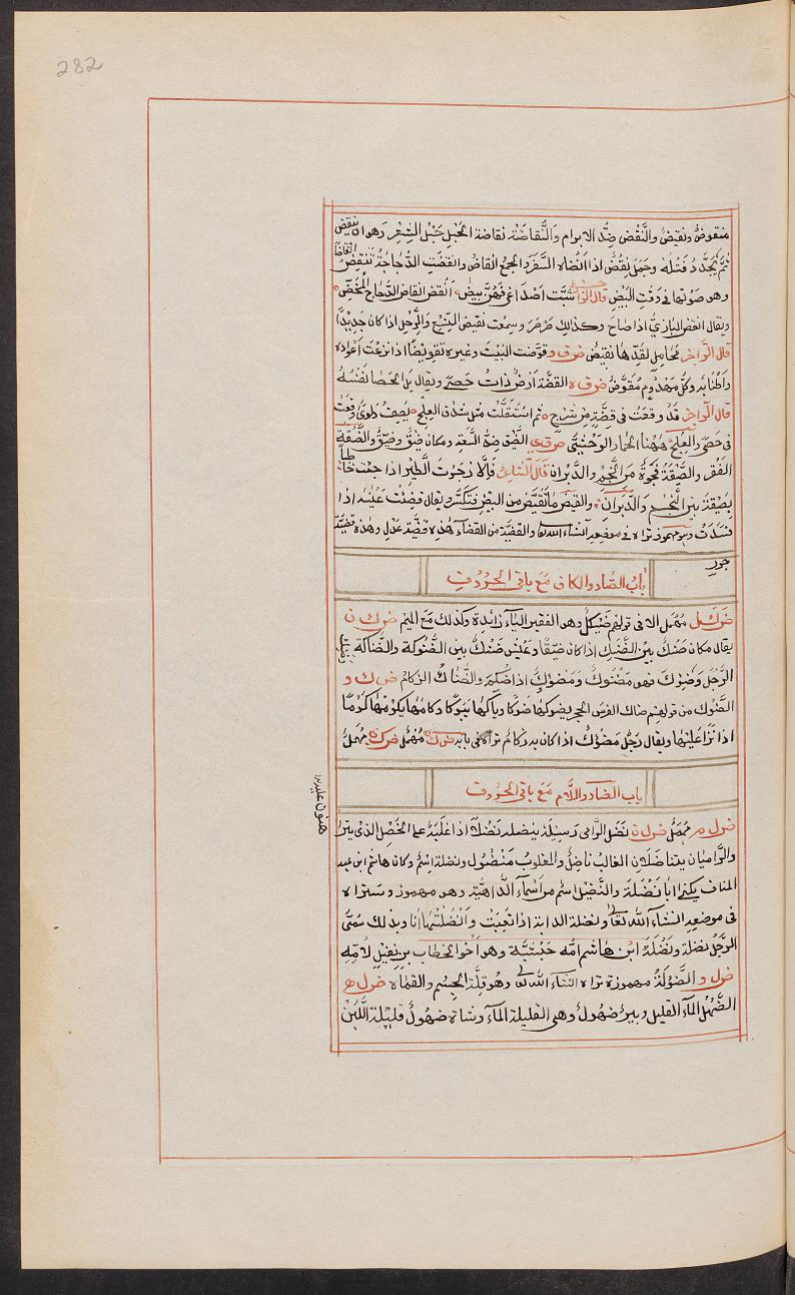 282
منقوض ونقيض والنَّقض ضدّ الابرام والنُّقاضَة نقاضة الحبل حَبْل الشعر وهو ان ينقض
ثمّ يُجدَّد فتله وجمل نِقْضٌ اذا انضاه السَّفَر والجمع انقاض وانقضَت الدُّجاجة تنقض انقاضًا
وهو صوتها فى وقت البَيْض قال الرّاجز شبّت اَصْداغى فهُنّ بيض
ويقال انقض البازىُّ اذا صاح وكذلك وسمعت نقيض النِسْع والرَّحل اذا كان جديدًا
قال الرّاجز مَحامِل لقِدّها نقيض ض ق و قوّضت البيت وغيره تقويضًا اذا نزعت اعواده
واطنابه وكلّ مهدوم مُقَوَّض ض ق ه القِضَّة ارضٌ ذات حصى ويقال بل الحصا نفسه
قال الرّاجز قد وقعت فى قضّة من شَرْج ثم استقلّت مثل شدق العِلْج يصف دلوًا وقعت
فى حصى والعِلج هٰهُنا الحمار الوحشىّ ض ق ى الضّيق ضدّ السّعة ومكان ضَيْق وضيّق والضَّيْقة
الفقر والضَّيْقة فَجوة بين النجم والدبران قال الشاعر فَهَلّا زَجَرْتَ الطَّير اذا جئت خاطبًا
بضيقة بين النّجم والدّبَران والقيض ما تَقَيَّض من البيض فتكسَّر ويقال قضِئت عَيْنه اذا
فسدت وهو مهموز تراه فى موضعه انشاء الله تعالى والقضيّة من القضاء هٰذه قضيّة عدل وهذه قضيّة
جور
باب الضاد والكاف مَع باقى الحُروف
ض ك ل مُهْمَل الا فى قولهم ضَيْكل وهو الفقير الياء زائدة وكذلك مَعَ الميم ض ك ن
يقال مكان ضَنْك بيّن الضَّنك اذا كان ضيّقًا وعَيش ضَنْك بين الضُّنوكة والضَّناكة
الرَّجل وَضُنِك فهو مَضْنوك وَمَضؤوك اذا ضُكِم والضُّناك الزكام ض ك و
الضَّوك من قولهم ضاك الفرس الحجر يضوكها ضَوْكًا وباكها يبوكها بَوْكًا وكامها يكومها كَوْمًا
اذا نَزا عَليها ويقال رَجُل مضؤك اذا كان به زكام تراه فى بابه ض ك ه مُهمَل ض ك ى مهمل
باب الضاد واللّام مَعَ باقى الحروف
ض ل م مُهمَل ض ل ن نَضَل الرّامى رَسيله ينضله نَضْلًا اذا غَلَبَهُ على الخَصْل الذى يترا
والرّاميان يتناضَلان الغالب ناضل والمغلوب مَنضُول ونضلة اسم وكان هاشم ابن عبد
المناف يكنى ابا نَضْلَة والنَّئضِل اسم من اسماء الدَّاهيّة وهو مهموز وستراه
فى موضعه انشآء الله تعالى ونضلة الدابة اذا تعبت وانضلتها انا وبذلك سمّى
الرَّجُل نضلة ونَضْلَة ابن هاشم امّه حَبَشيّة وهو اخو الخطاب بن نفيل لامّه
ض ل و الضّؤلةُ مهموزة تراه انشآء الله تعالى وهو قلّة الجسم والقماة ض ل ه
الضَّهْل المآء القليل وبير ضَهُول وهى القليلة المآء وشاة ضهولٌ قليلة اللَّبن